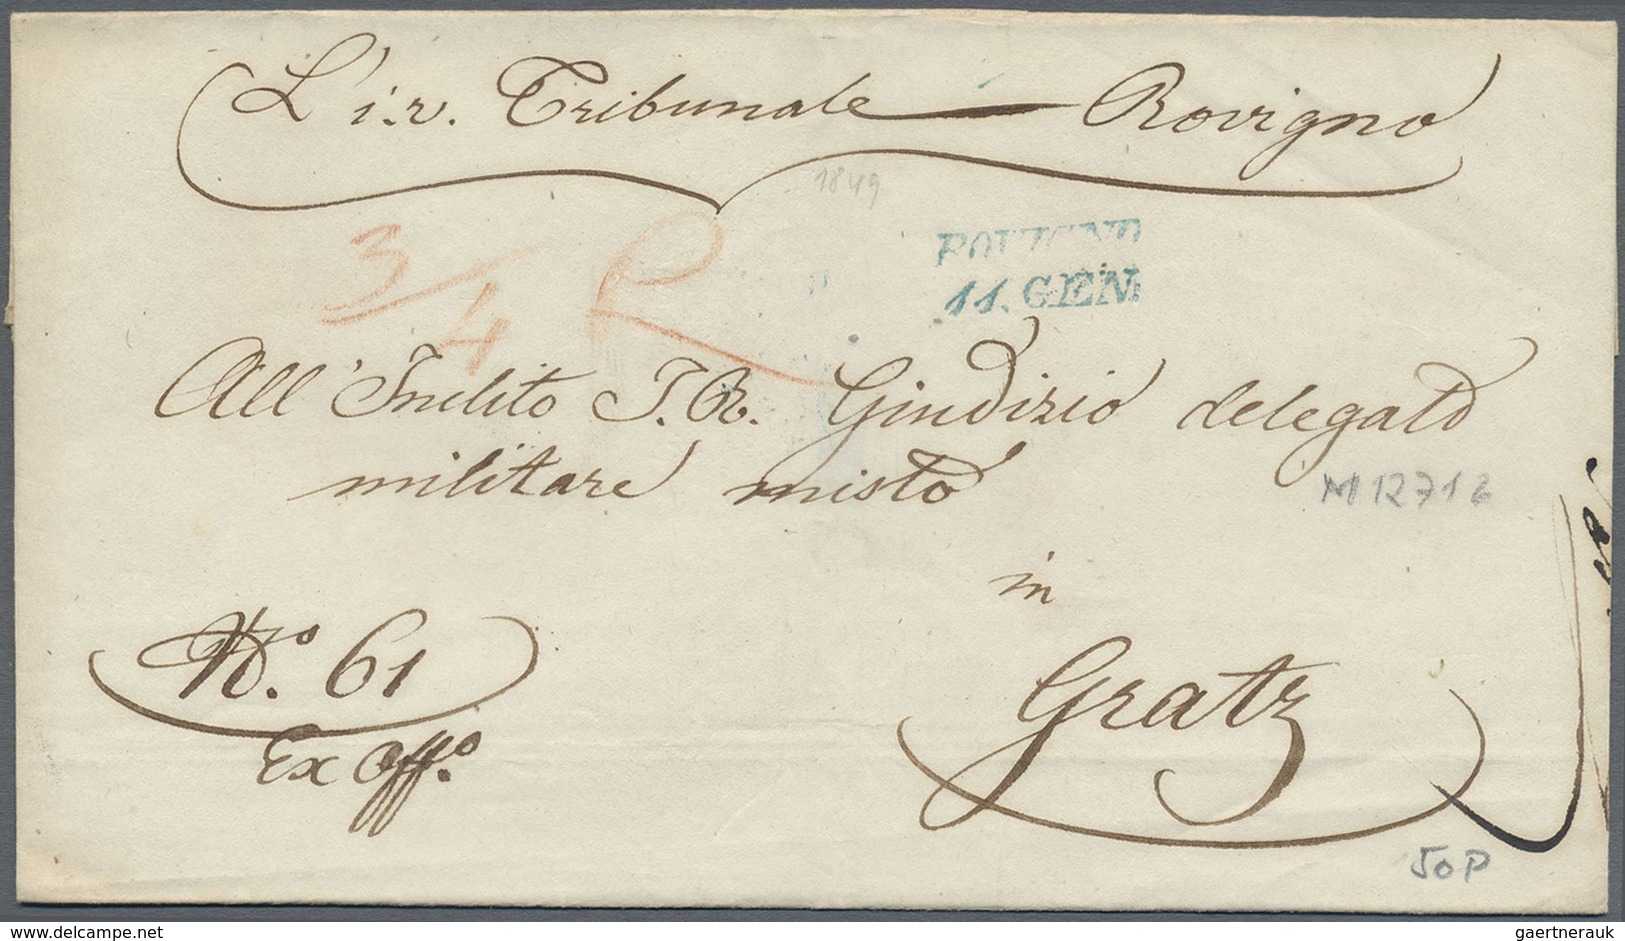 L'i.r. Tribunale — Rovigno
1849
3/4 R
ROVIGNO
11. GEN.
All'Inclito I. R. Giudizio delegato
militare misto
M 12716
in
No. 61
Gratz
Ex Offo.
50P
delcampe.net
gaertnerauk